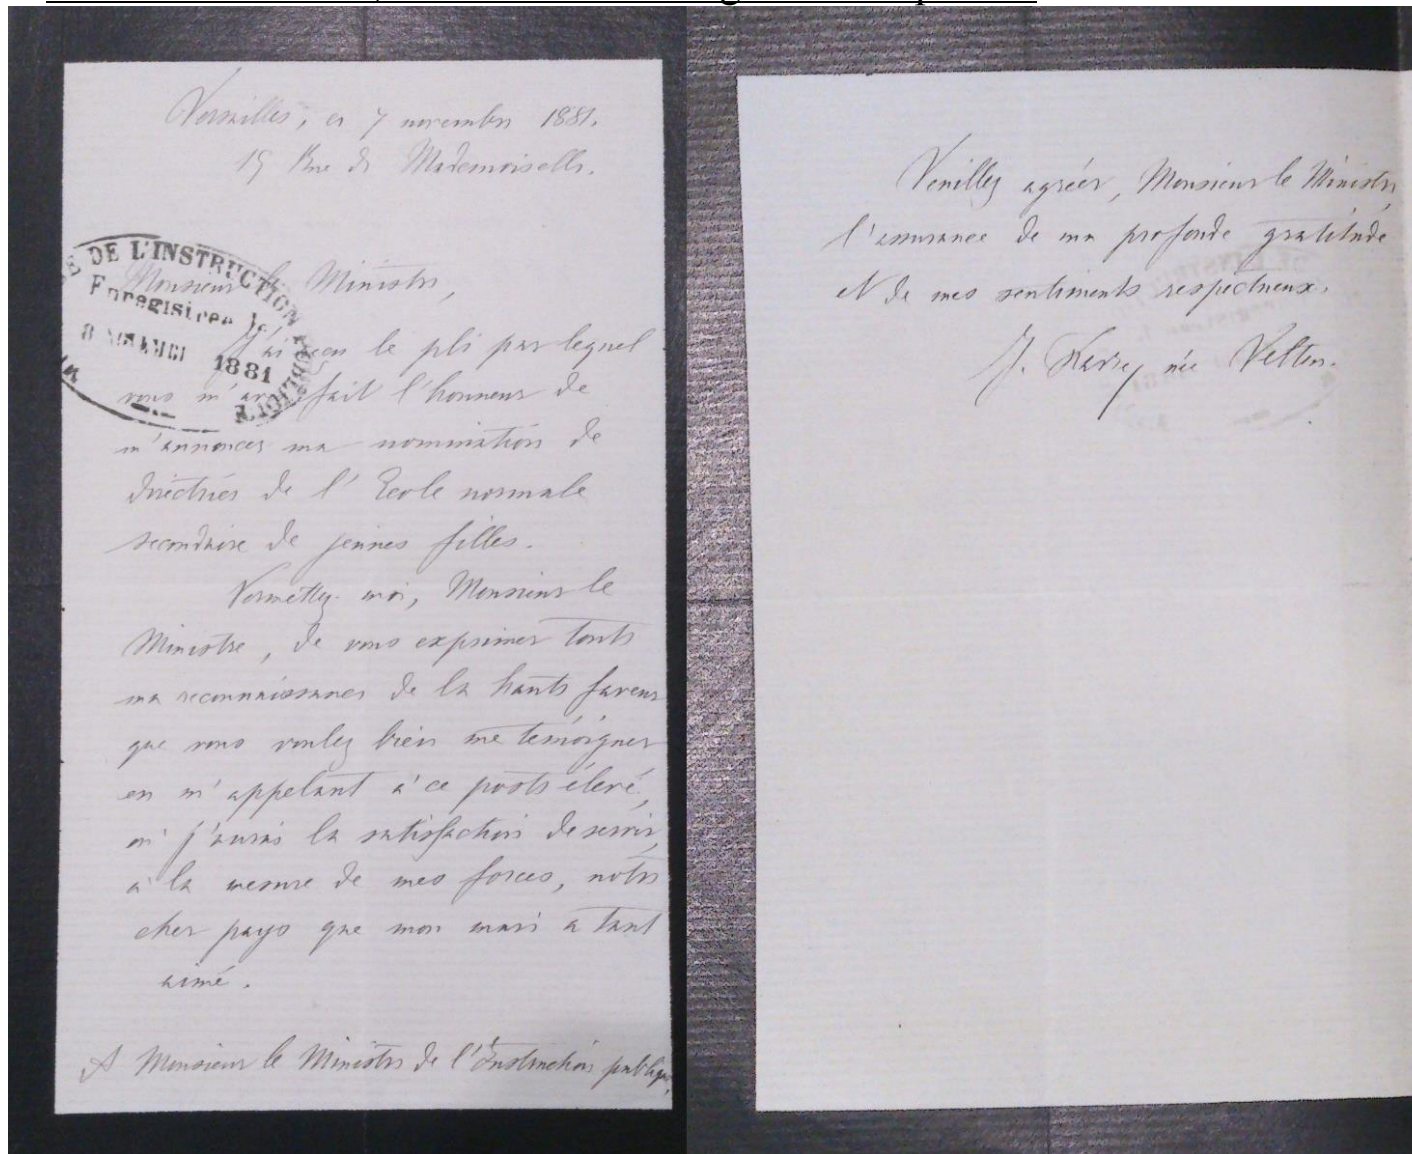 Versailles, ce 7 novembre 1881.
15 Rue de Mademoiselle.
DE L'INSTRUCTION PUBLIQUE
Enregistrée le
8 1881
Monsieur le Ministre,
J'ai reçu le pli par lequel
vous m'avez fait l'honneur de
m'annoncer ma nomination de
directrice de l'Ecole normale
secondaire de jeunes filles.
Permettez-moi, Monsieur le
Ministre, de vous exprimer toute
ma reconnaissance de la haute faveur
que vous voulez bien me témoigner
en m'appelant à ce poste élevé,
où j'aurai la satisfaction de servir,
à la mesure de mes forces, notre
cher pays que mon mari a tant
aimé.
A Monsieur le Ministre de l'Instruction publique.
Veuillez agréer, Monsieur le Ministre,
l'assurance de ma profonde gratitude
et de mes sentiments respectueux.
J. Favre née Velten.